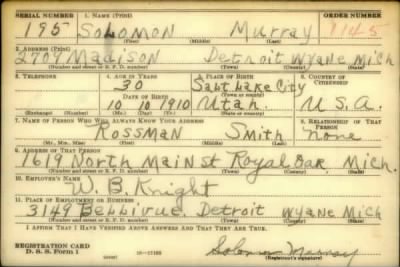 SERIAL NUMBER 1. NAME (Print) ORDER NUMBER
195 SOLOMON Murray
(First) (Middle) (Last)
2. ADDRESS (Print)
2709 Madison Detroit Wyane Mich
(Number and street or R. F. D. number) (Town) (County) (State)
3. TELEPHONE 4. AGE IN YEARS 5. PLACE OF BIRTH 6. COUNTRY OF CITIZENSHIP
30 Salt Lake City
DATE OF BIRTH (Town or county)
10 10 1910 Utah. U.S.A.
(Exchange) (Number) (Mo.) (Day) (Yr.) (State or country)
7. NAME OF PERSON WHO WILL ALWAYS KNOW YOUR ADDRESS 8. RELATIONSHIP OF THAT PERSON
Rossman Smith none
(Mr., Mrs., Miss) (First) (Middle) (Last)
9. ADDRESS OF THAT PERSON
1619 North Main st Royal Oak, Mich.
(Number and street or R. F. D. number) (Town) (County) (State)
10. EMPLOYER'S NAME
W. B. Knight
11. PLACE OF EMPLOYMENT OR BUSINESS
3149 Detroit Wyane Mich
(Number and street or R. F. D. number) (Town) (County) (State)
I AFFIRM THAT I HAVE VERIFIED ABOVE ANSWERS AND THAT THEY ARE TRUE.
REGISTRATION CARD
D. S. S. Form 1 Solomon Murray
(Registrant's signature)